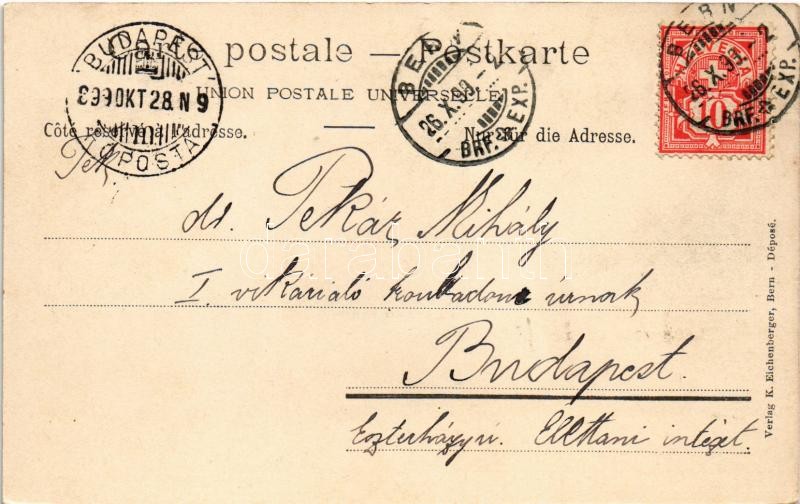 postale — Postkarte
UNION POSTALE UNIVERSELLE
Côte réservé à l'adresse. Nur für die Adresse.
BUDAPEST
899 OKT 28. N 9
FŐPOSTA
BERN
26.X.99.
BRF. EXP.
HELVETIA
10
BERN
26.X.99.
BRF. EXP.
Tek
dr. Tekár Mihály
I. urnak
Budapest.
Eszterházy u. Élettani intézet.
Verlag K. Eichenberger, Bern - Déposé.
darabanth